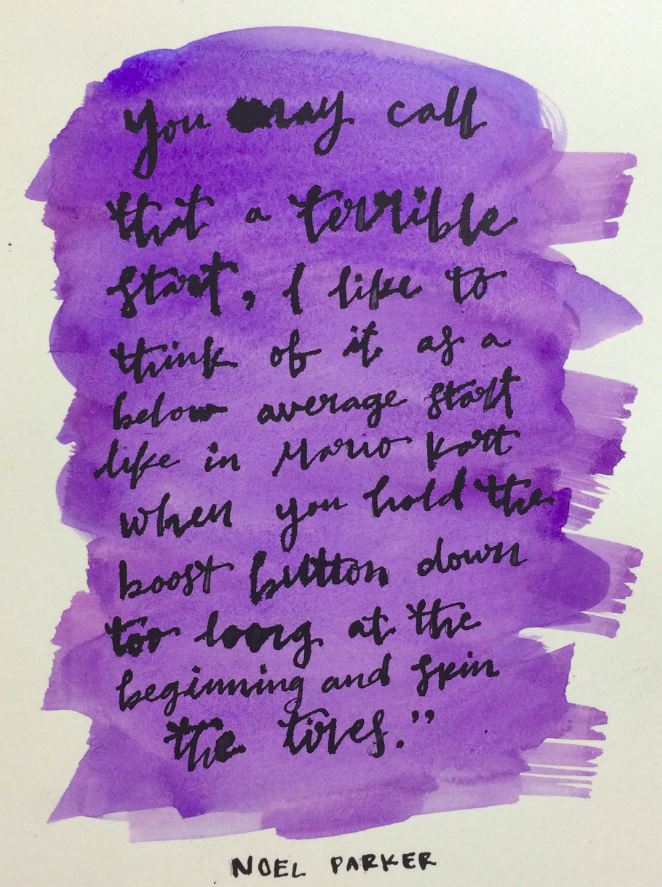 You may call
that a terrible
start, I like to
think of it as a
below average start
like in Mario Kart
when you hold the
boost button down
too long at the
beginning and spin
the tires."
NOEL PARKER